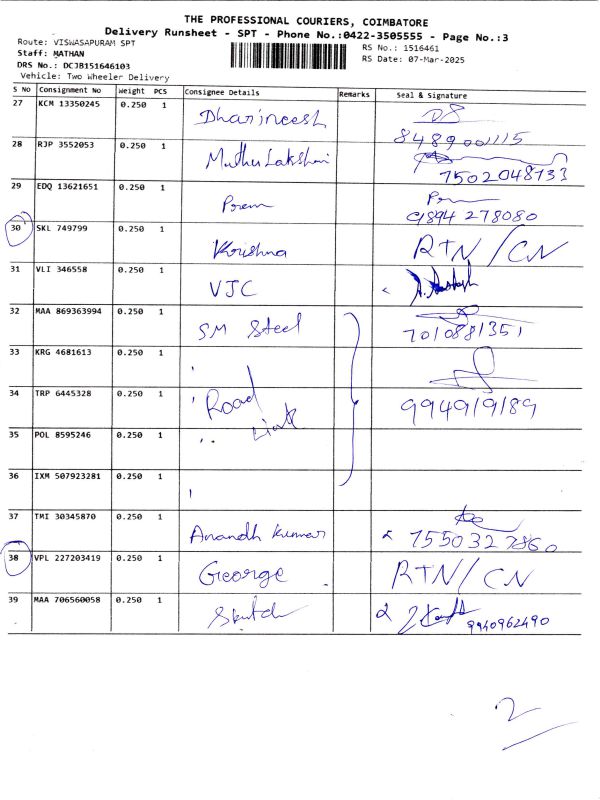 THE PROFESSIONAL COURIERS, COIMBATORE
Delivery Runsheet - SPT - Phone No.:0422-3505555 - Page No.:3
Route: VISWASAPURAM SPT
Staff: MATHAN
DRS No.: DCJB151646103
Vehicle: Two Wheeler Delivery
RS No.: 1516461
RS Date: 07-Mar-2025
S No Consignment No Weight PCS Consignee Details Remarks Seal & Signature
27 KCM 13350245 0.250 1 Dharineesh
28 RJP 3552053 0.250 1 Muthu Lakshmi 7502048733
29 EDQ 13621651 0.250 1 Prem 9894 278080
30 SKL 749799 0.250 1 Krishna RTN/CN
31 VLI 346558 0.250 1 VJC
32 MAA 869363994 0.250 1 SM Steel 7010881351
33 KRG 4681613 0.250 1
34 TRP 6445328 0.250 1 Road Link
35 POL 8595246 0.250 1
36 IXM 507923281 0.250 1
37 TMI 30345870 0.250 1 Anandh Kumar
38 VPL 227203419 0.250 1 George RTN/CN
39 MAA 706560058 0.250 1 9940962490
2